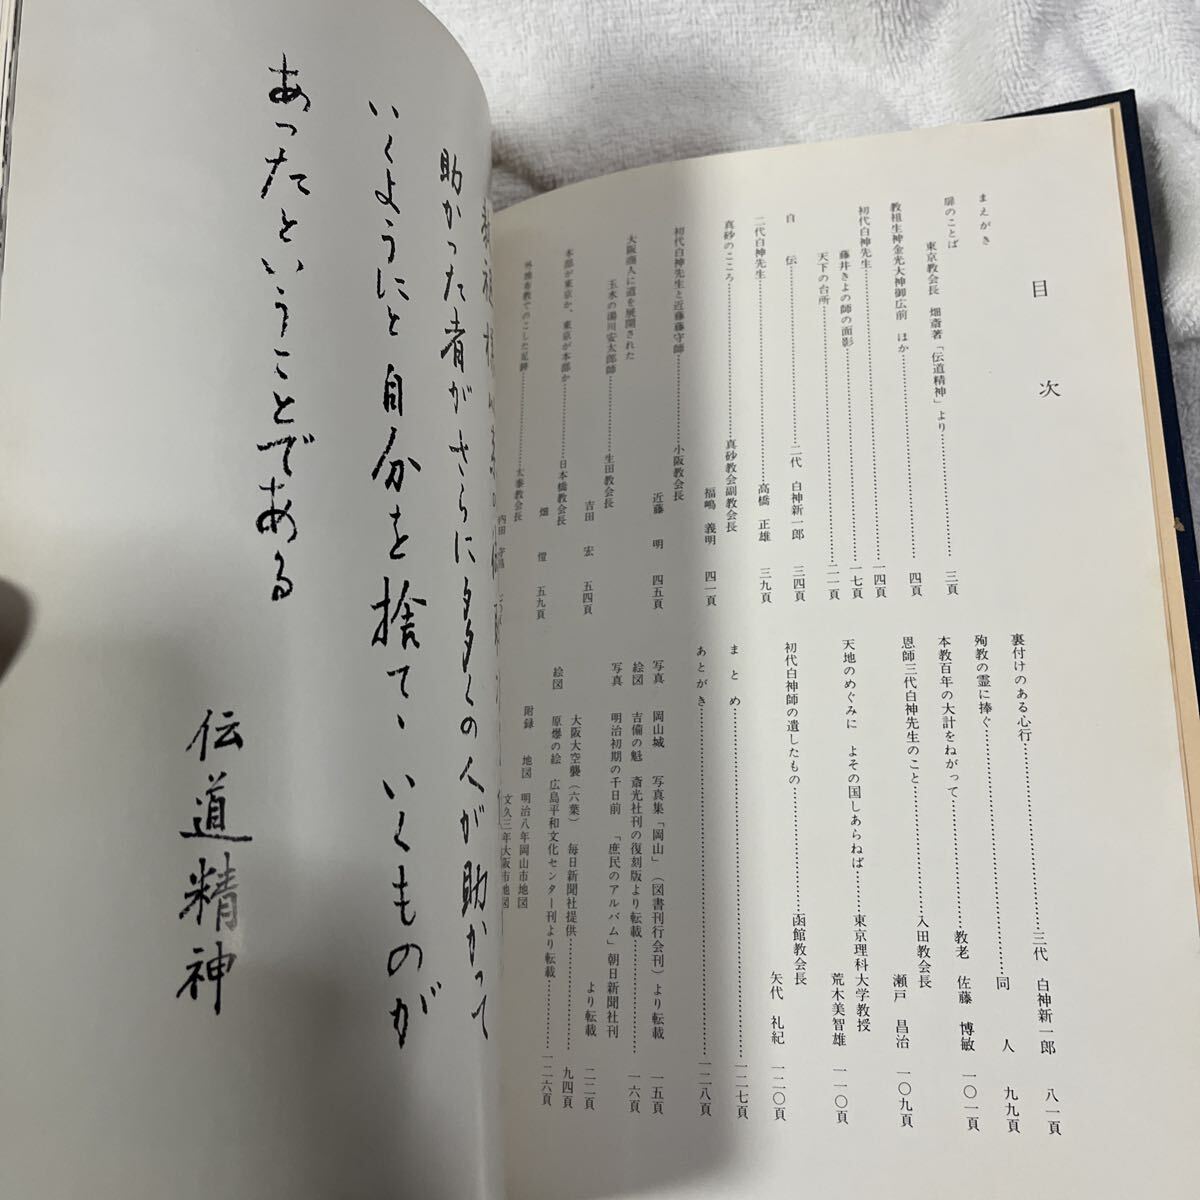 目次
まえがき
扉のことば
東京教会長 畑斎著「伝道精神」より……三頁
教祖生神金光大神御広前 ほか 四頁
初代白神先生……一四頁
藤井きよの師の面影……一七頁
天下の台所……二一頁
自伝……二代 白神新一郎 三四頁
二代白神先生……高橋 正雄 三九頁
真砂のこころ……真砂教会副教会長
福嶋 義明 四一頁
初代白神先生と近藤藤守師……小阪教会長
近藤 明 四五頁
大阪商人に道を展開された
玉水の湯川安太郎師……生田教会長
吉田 宏 五四頁
本部が東京か、東京が本部か……日本橋教会長
畑 愷 五九頁
外地布教でのこした足跡……太泰教会長
裏付けのある心行……三代 白神新一郎 八一頁
殉教の霊に捧ぐ……同人 九九頁
本教百年の大計をねがって……教老 佐藤 博敏 一〇一頁
恩師三代白神先生のこと……入田教会長
瀬戸 昌治 一〇九頁
天地のめぐみに よその国しあらねば……東京理科大学教授
荒木美智雄 一一〇頁
初代白神師の遺したもの……函館教会長
矢代 礼紀 一二〇頁
まとめ……一二七頁
あとがき……一二八頁
写真 岡山城 写真集「岡山」（図書刊行会刊）より転載 一五頁
絵図 吉備の魁 斎光社刊の復刻版より転載……一六頁
写真 明治初期の千日前 「庶民のアルバム」朝日新聞社刊
より転載 二二頁
大阪大空襲（六葉） 毎日新聞社提供……九四頁
絵図 原爆の絵 広島平和文化センター刊より転載……一二六頁
附録 地図 明治八年岡山市地図
文久三年大阪市地図
助かった者がさらに多くの人が助かって
いくようにと自分を捨て、いくものが
あったということである
伝道精神